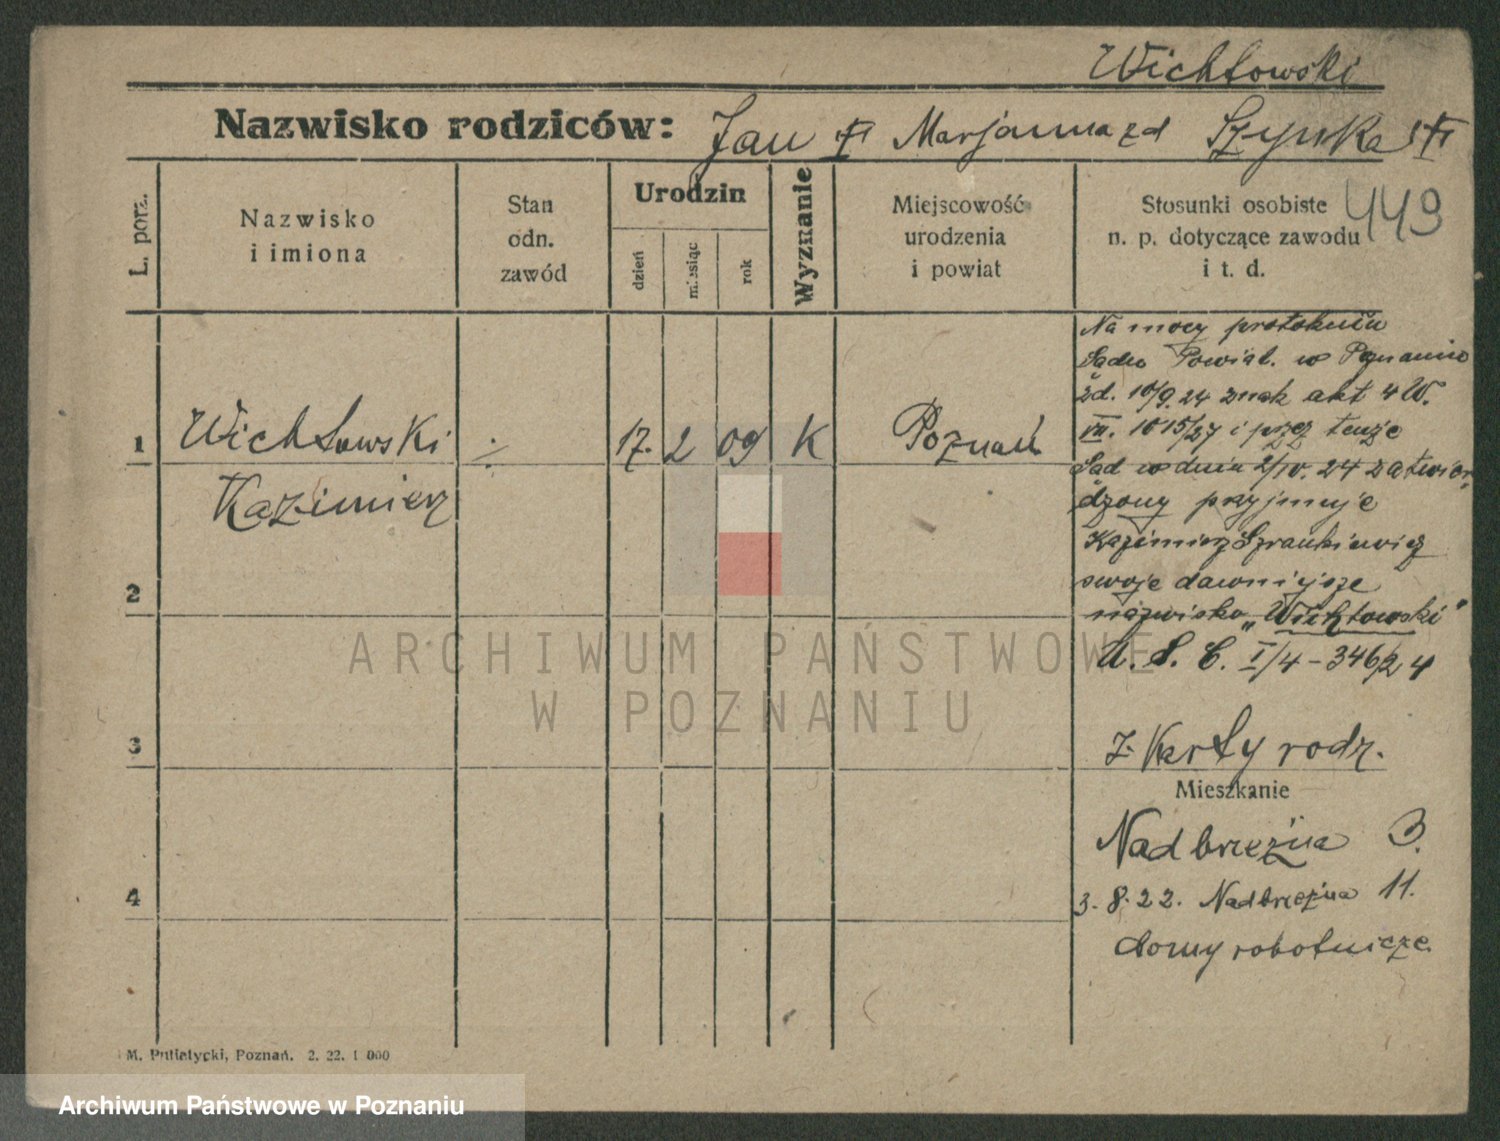 Wichłowski
Nazwisko rodziców: Jan Marjanna zd Szynka
449
L. porz.
Nazwisko
i imiona
Stan
odn.
zawód
Urodzin
dzień
miesiąc
rok
Wyznanie
Miejscowość
urodzenia
i powiat
Stosunki osobiste
n. p. dotyczące zawodu
i t. d.
Na mocy protokułu
Sądu Powiat. w Poznaniu
zd. 10/9. 24 znak akt 4 W.
VII. 1015/24 i przez tenże
Sąd w dniu 2/IV. 24 zatwier
dzony przyjmuje
Kazimierz
swoje dawniejsze
nazwisko „Wichłowski"
U. S. C. I/4 - 346/24
1
Wichłowski
÷
17. 2 09
K
Poznań
Kazimierz
2
3
4
z Karty rodz.
Mieszkanie
Nadbrzeżna 3.
3. 8. 22. Nadbrzeżna 11.
domy robotnicze
M. Putiatycki, Poznań. 2. 22. 1 000
ARCHIWUM PAŃSTWOWE
W POZNANIU
Archiwum Państwowe w Poznaniu